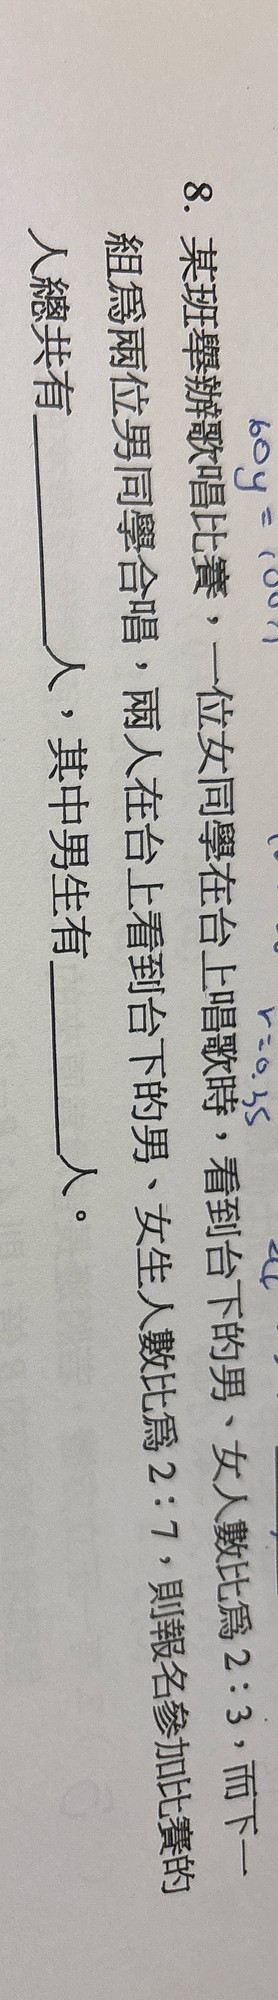 60y = 100x
r=0.35
8. 某班舉辦歌唱比賽，一位女同學在台上唱歌時，看到台下的男、女人數比爲 2：3，而下一
組爲兩位男同學合唱，兩人在台上看到台下的男、女生人數比爲 2：7，則報名參加比賽的
人總共有＿＿＿＿＿人，其中男生有＿＿＿＿＿人。